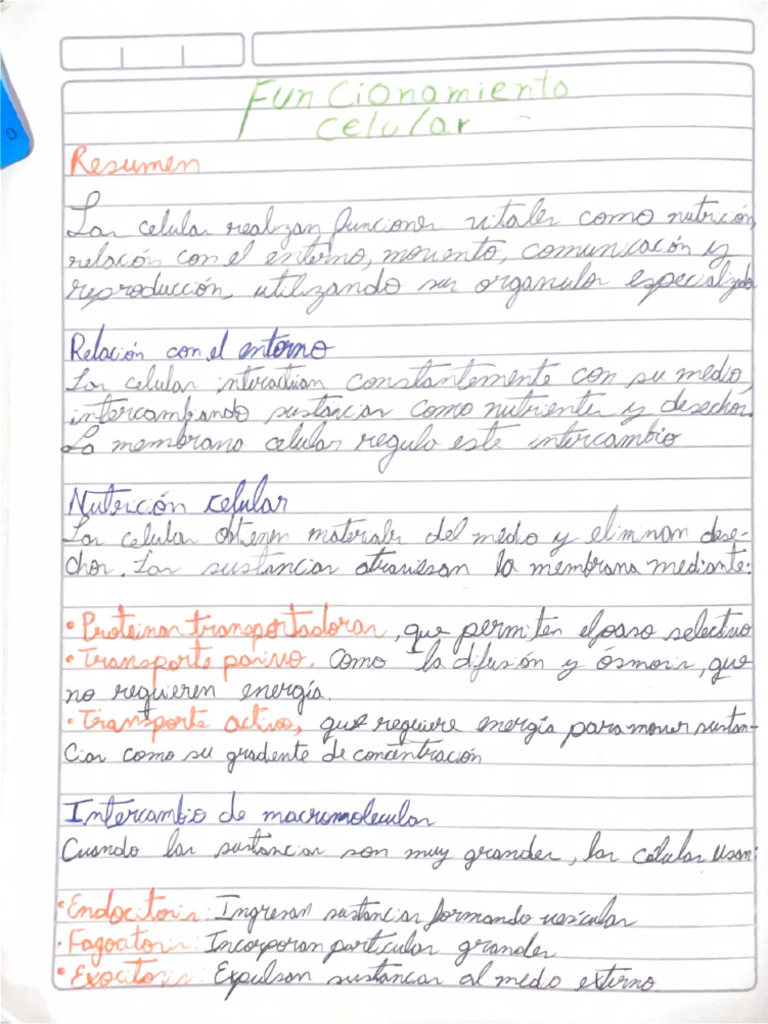 Funcionamiento
celular
Resumen
Las celular realizan funciones vitales como nutrición,
relación con el entorno, moviento, comunicación y
reproducción, utilizando sus organulos especializado
Relación con el entorno
Las celular interactuan constantemente con su medio,
intercambiando sustancias como nutrientes y desechos.
La membrana celular regula este intercambio
Nutrición celular
Las celular obtienen materiales del medio y eliminan dese-
chos. Las sustancias atraviesan la membrana mediante:
• Proteinas transportadoras, que permiten el paso selectivo
• Transporte pasivo, como la difusión y ósmosis, que
no requieren energía.
• Transporte activo, que requiere energía para mover sustan-
cias como su gradente de concentración
Intercambio de macromolecular
Cuando las sustancias son muy grandes, las células usan:
• Endocitosis: Ingresan sustancias formando vesículas
• Fagocitosis: Incorporan particulas grandes
• Exocitosis: Expulsan sustancias al medio externo